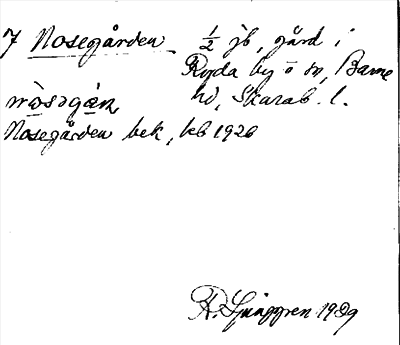 7 Nosegården ½ jb, gård i
Ryda by o sn, Barne
nòsəgàn, hd, Skarab. l.
Nosegården bek, kb 1926
R. Ljunggren 1939